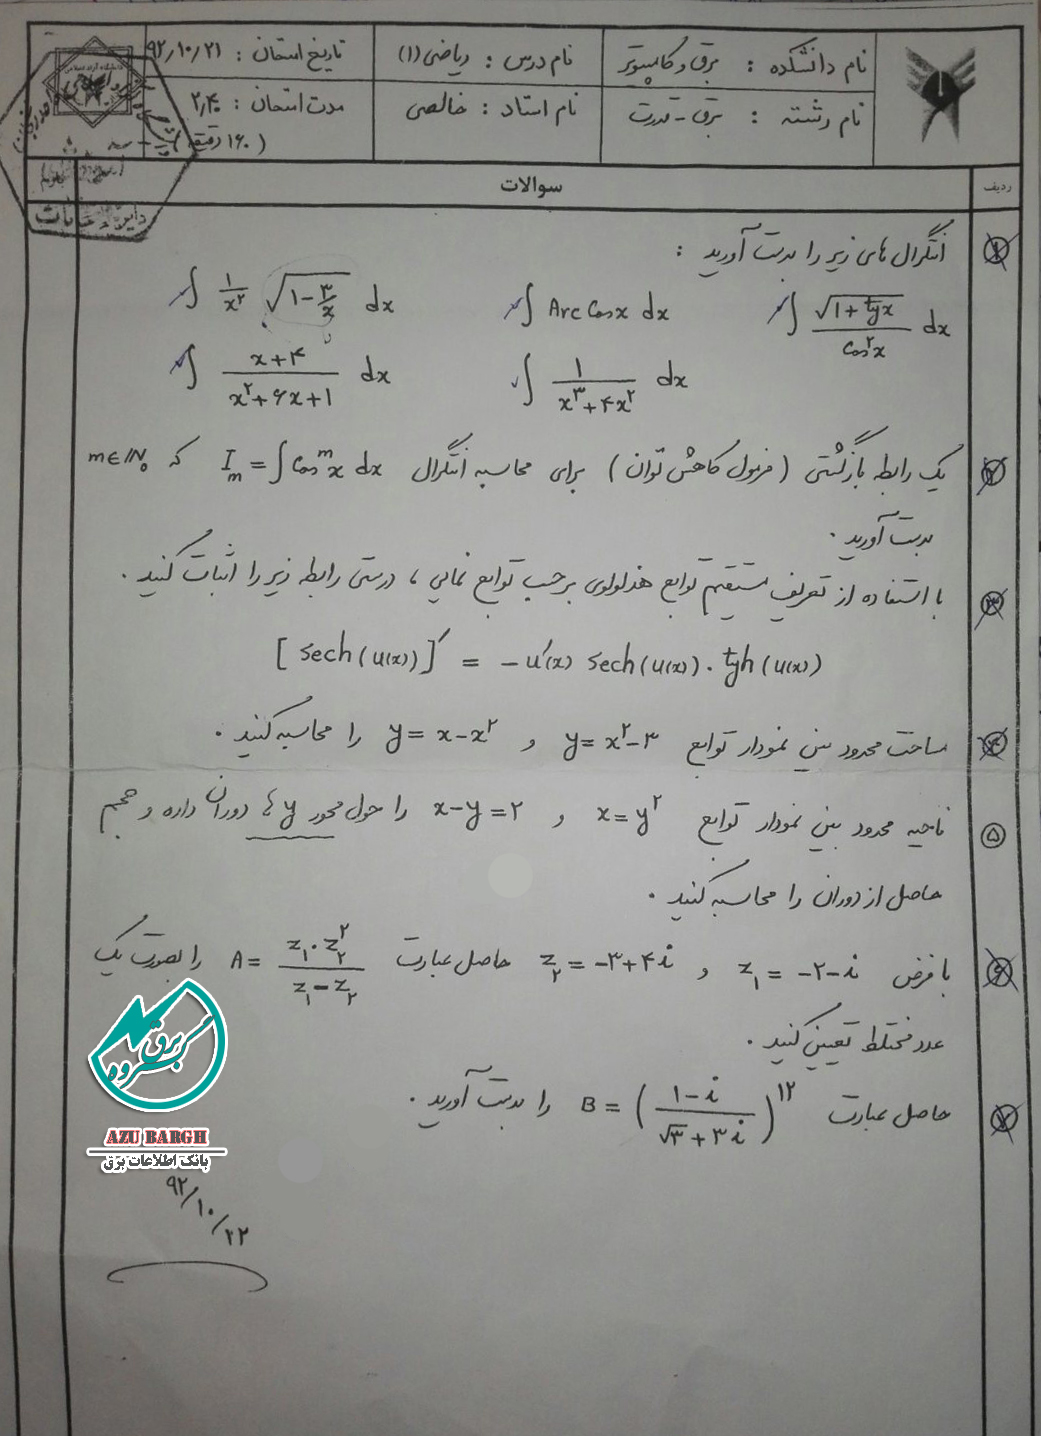 نام دانشکده : برق و کامپیوتر
نام درس : ریاضی (۱)
تاریخ امتحان : ۹۲/۱۰/۲۱
نام رشته : برق - قدرت
نام استاد : خالصی
مدت امتحان : ۲,۴۰
(۱۶۰ دقیقه)
ردیف
سوالات
۱ انتگرال های زیر را بدست آورید :
∫ √(1+tgx) / cos²x dx   ∫ Arc Cosx dx   ∫ 1/x² √(1-۳/x) dx
∫ 1/(x³+۴x²) dx   ∫ (x+۴)/(x²+۶x+1) dx
۲ یک رابطه بازگشتی (فرمول کاهش توان) برای محاسبه انتگرال Iₘ = ∫ Cosᵐx dx که m∈ℕ₀
بدست آورید .
۳ با استفاده از تعریف مستقیم توابع هذلولوی برحسب توابع نمایی ، درستی رابطه زیر را اثبات کنید .
[sech(u(x))]′ = -u′(x) sech(u(x)) . tgh(u(x))
۴ مساحت محدود بین نمودار توابع y = x²-۳ و y = x-x² را محاسبه کنید .
۵ ناحیه محدود بین نمودار توابع x = y² و x-y = ۲ را حول محور y ها دوران داده و حجم
حاصل از دوران را محاسبه کنید .
۶ با فرض z₁ = -۲-i و z₂ = -۳+۴i حاصل عبارت A = (z₁.z₂²)/(z₁-z₂) را بصورت یک
عدد مختلط تعیین کنید .
۷ حاصل عبارت B = ((1-i)/(√۳+۳i))¹² را بدست آورید .
برق
گروه
AZU BARGH
بانک اطلاعات برق
۹۲/۱۰/۲۲